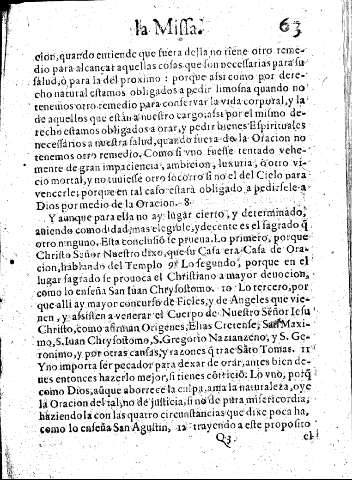 la Missa. 63
cion, quando entiende que fuera della no tiene otro reme-
dio para alcançar aquellas cosas que son necessarias para su
salud, ò para la del proximo: porque assi como por dere-
cho natural estamos obligados a pedir limosna quando no
tenemos otro remedio para conservar la vida corporal, y la
de aquellos que estàn a nuestro cargo; assi por el mismo de-
recho estamos obligados a orar, y pedir bienes Espirituales
necessarios a nuestra salud, quando fuera de la Oracion no
tenemos otro remedio. Como si vno fuesse tentado vehe-
mente de gran impaciencia, ambicion, luxuria, ò otro vi-
cio mortal, y no tuuiesse otro socorro si no el del Cielo para
vencerle; porque en tal caso estarà obligado a pedirsele a
Dios por medio de la Oracion. 8.
Y aunque para ella no ay lugar cierto, y determinado,
auiendo comodidad, mas elegible, y decente es el sagrado q̃
otro ninguno. Esta conclusiõ se prueua. Lo primero, porque
Christo Señor Nuestro dixo, que su Casa era Casa de Ora-
cion, hablando del Templo 9. Lo segundo, porque en el
lugar sagrado se prouoca el Christiano a mayor deuocion,
como lo enseña San Iuan Chrysostomo. 10 Lo tercero, por
que alli ay mayor concurso de Fieles, y de Angeles que vie-
nen, y assisten a venerar el Cuerpo de Nuestro Señor Iesu
Christo, como afirman Origenes, Elias Cretense, San Maxi-
mo, S. Iuan Chrysostomo, S. Gregorio Nazianzeno, y S. Ge-
ronimo, y por otras causas, y razones q̃ trae Sãto Tomas. 11
Y no importa ser pecador para dexar de orar, antes bien de-
ues entonces hazerlo mejor, si tienes cõtriciõ: Lo vno, porq̃
como Dios, aũque aborrece la culpa, ama la naturaleza, oye
la Oracion del tal, no de justicia, si no de pura misericordia,
haziendola con las quatro circunstancias que dixe poco ha,
como lo enseña San Agustin, 12 trayendo a este proposito
Q3 el